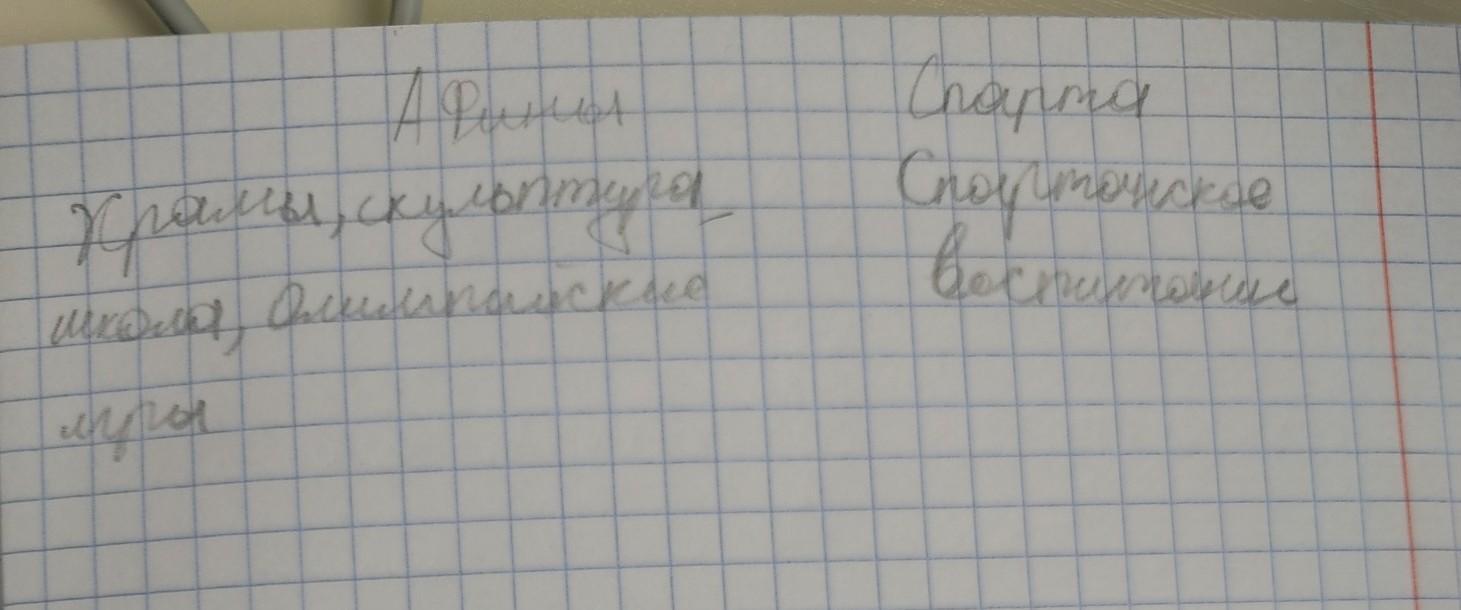 Афины Спарта
Храмы, скульптура Спартанское
школа, Олимпийские воспитание
игры